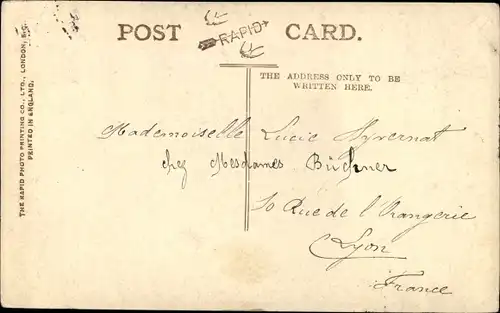 POST CARD.
RAPID
THE ADDRESS ONLY TO BE
WRITTEN HERE.
THE RAPID PHOTO PRINTING CO., LTD., LONDON, E.C.
PRINTED IN ENGLAND.
Mademoiselle Lucie Hyvernat
chez Mesdames Büchner
10 Rue de l'Orangerie
Lyon
France